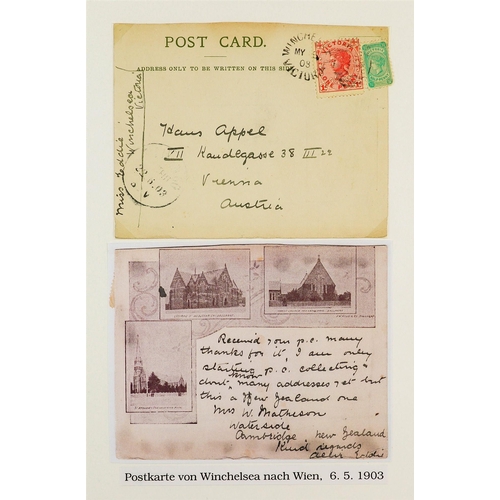 POST CARD.
ADDRESS ONLY TO BE WRITTEN ON THIS SIDE
WINCHE
MY
03
VICTORIA
VICTORIA
ONE PENNY
Miss Eddie
Winchelsea
Victoria
Hans Appel
VII Kandlgasse 38 III 22
Vienna
Austria
Received your p.c. many
thanks for it, I am only
starting p.c. collecting
dont know many addresses yet but
this a New Zealand one
Mrs W. Matheson
Waterside
Cambridge, New Zealand
Kind regards
Eddie
Postkarte von Winchelsea nach Wien, 6. 5. 1903